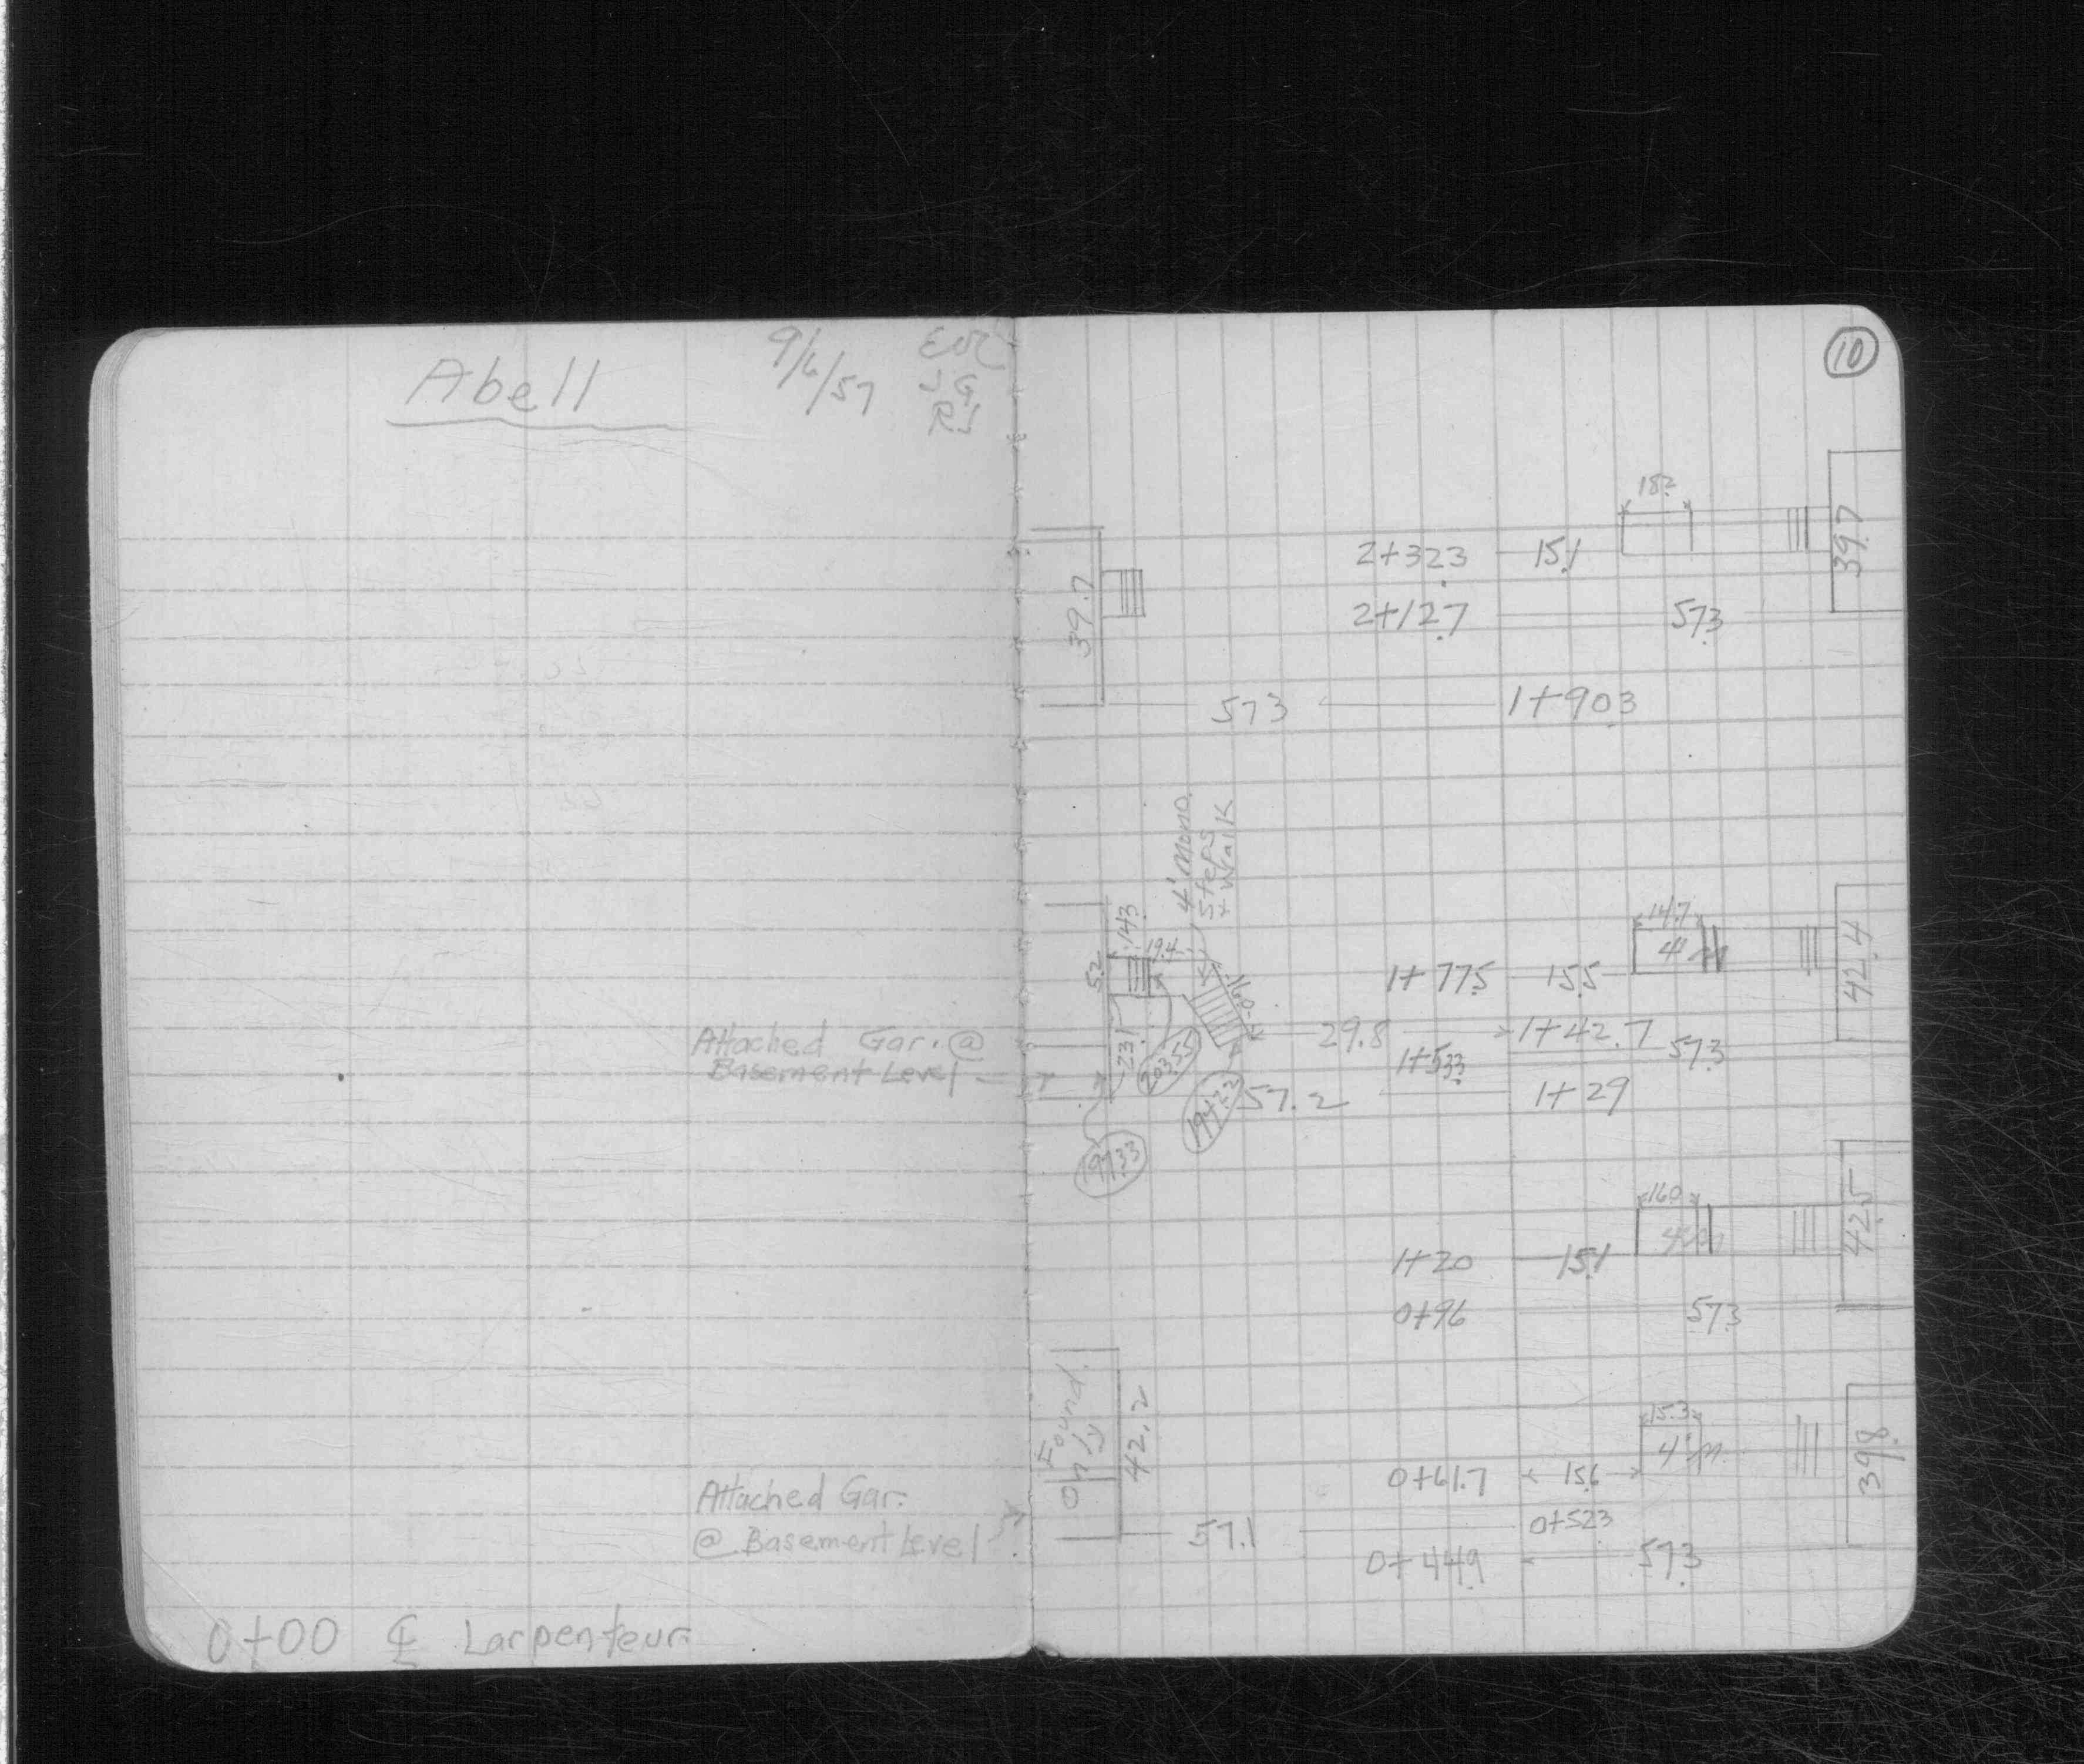 Abell
9/6/57
JG
RS
10
182
39.7
2+32.3 15.1
39.7
2+12.7 57.3
57.3 1+90.3
4' Mono.
Steps
+ Walk
14.3
19.4
5.2
14.7
4' m
42.4
1+77.5 15.5
Attached Gar. @
Basement Level
23.1
203.55
29.8 1+42.7
1+53.3 57.3
194.22
57.2 1+29
197.33
16.0
42.5
1+20 15.1
0+96 57.3
Found.
Only
42.2
15.3
4' m.
39.8
0+61.7 15.6
Attached Gar.
@ Basement Level
0+52.3
57.1
0+44.9 57.3
0+00 ℄ Larpenteur